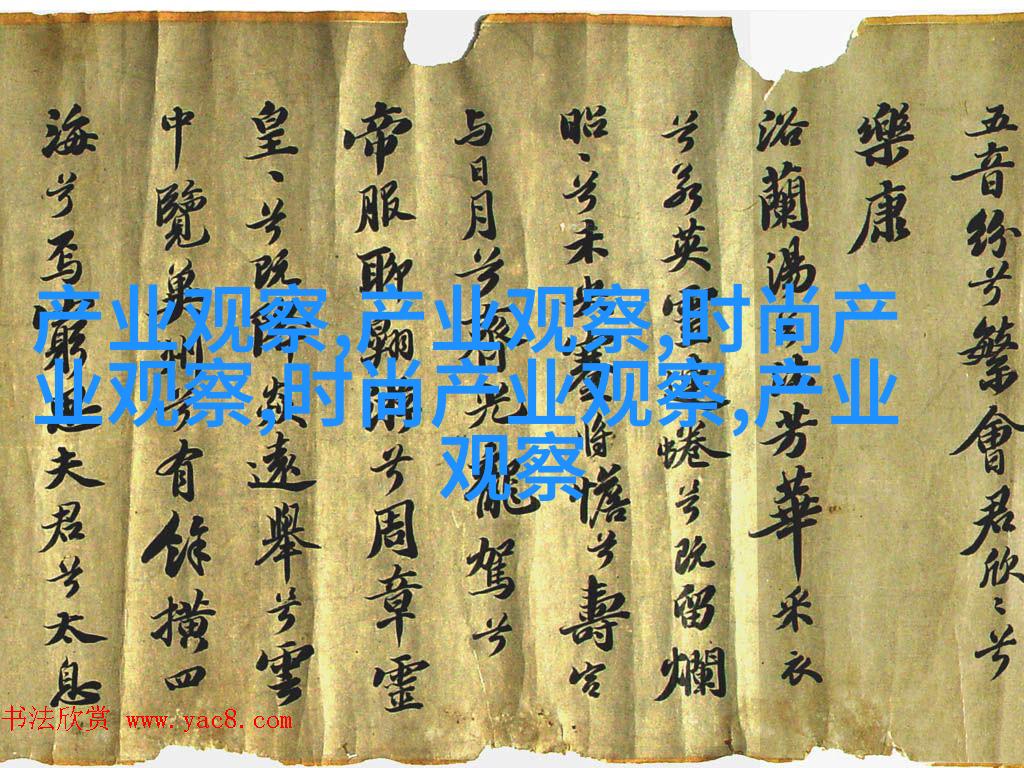 五音紛兮繁會君欣〻兮
樂康
浴蘭湯兮沐芳華采衣
兮若英靈連蜷兮既留爛
昭〻兮未央蹇將憺兮壽宮
与日月兮齊光龍駕兮
帝服聊翱游兮周章靈
皇〻兮既降焱遠舉兮雲
中覽冀州兮有餘橫四
海兮焉窮思夫君兮太息
产业观察,产业观察,时尚产
业观察,时尚产业观察,产业
观察
书法欣赏 www.yac8.com